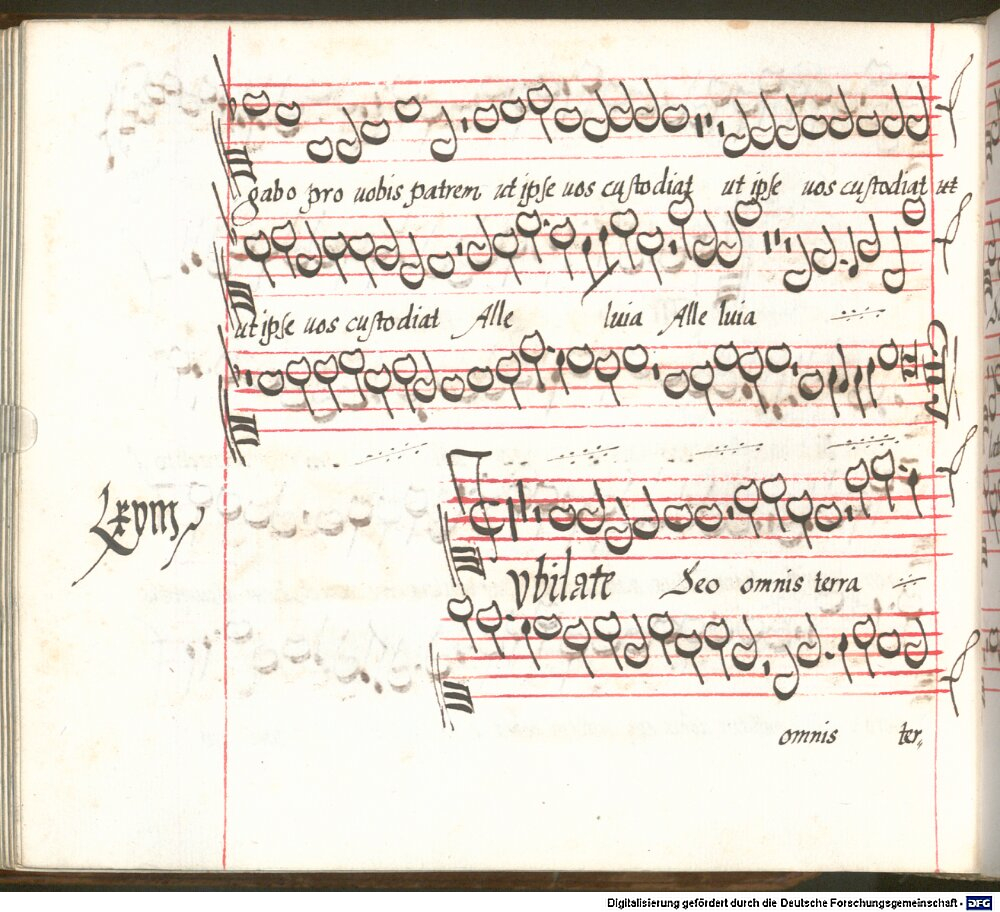 gabo pro uobis patrem ut ipse uos custodiat ut ipse uos custodiat ut
ut ipse uos custodiat Alle luia Alle luia
Lxviij
Iubilate Deo omnis terra
omnis ter„
Digitalisierung gefördert durch die Deutsche Forschungsgemeinschaft - DFG